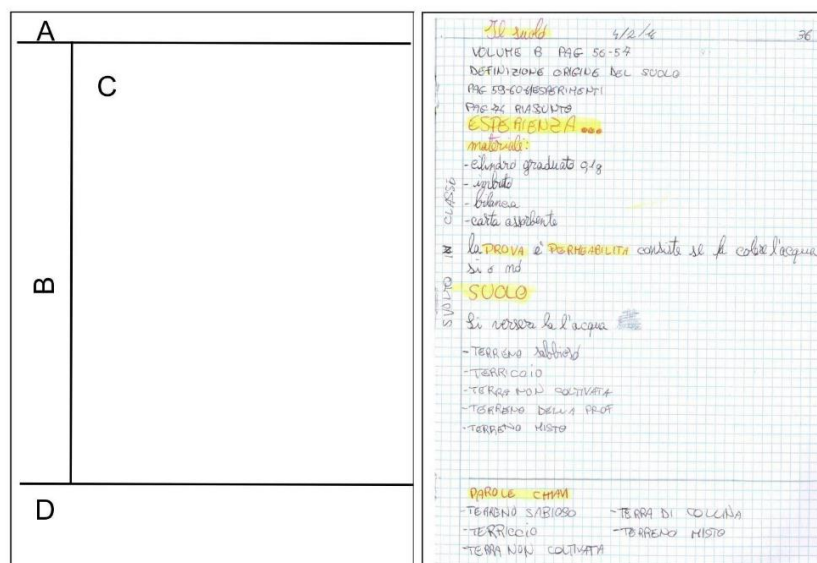 A
B
C
D
Il suolo 4/2/4 36
VOLUME B PAG 56-57
DEFINIZIONE ORIGINE DEL SUOLO
PAG 59-60 ESPERIMENTI
PAG 74 RIASSUNTO
ESPERIENZA...
materiale:
-cilindro graduato 0,1g
-imbuto
-bilancia
-carta assorbente
SVOLTO IN CLASSE
la PROVA è PERMEABILITA consiste se fa colare l'acqua
si o nó
SUOLO
Si versera la l'acqua
-TERRENO sabbioso
-TERRICCIO
-TERRA NON COLTIVATA
-TERRENO DELLA PROF
-TERRENO MISTO
PAROLE CHIAVI
-TERRENO SABIOSO -TERRA DI COLLINA
-TERRICCIO -TERRENO MISTO
-TERRA NON COLTIVATA